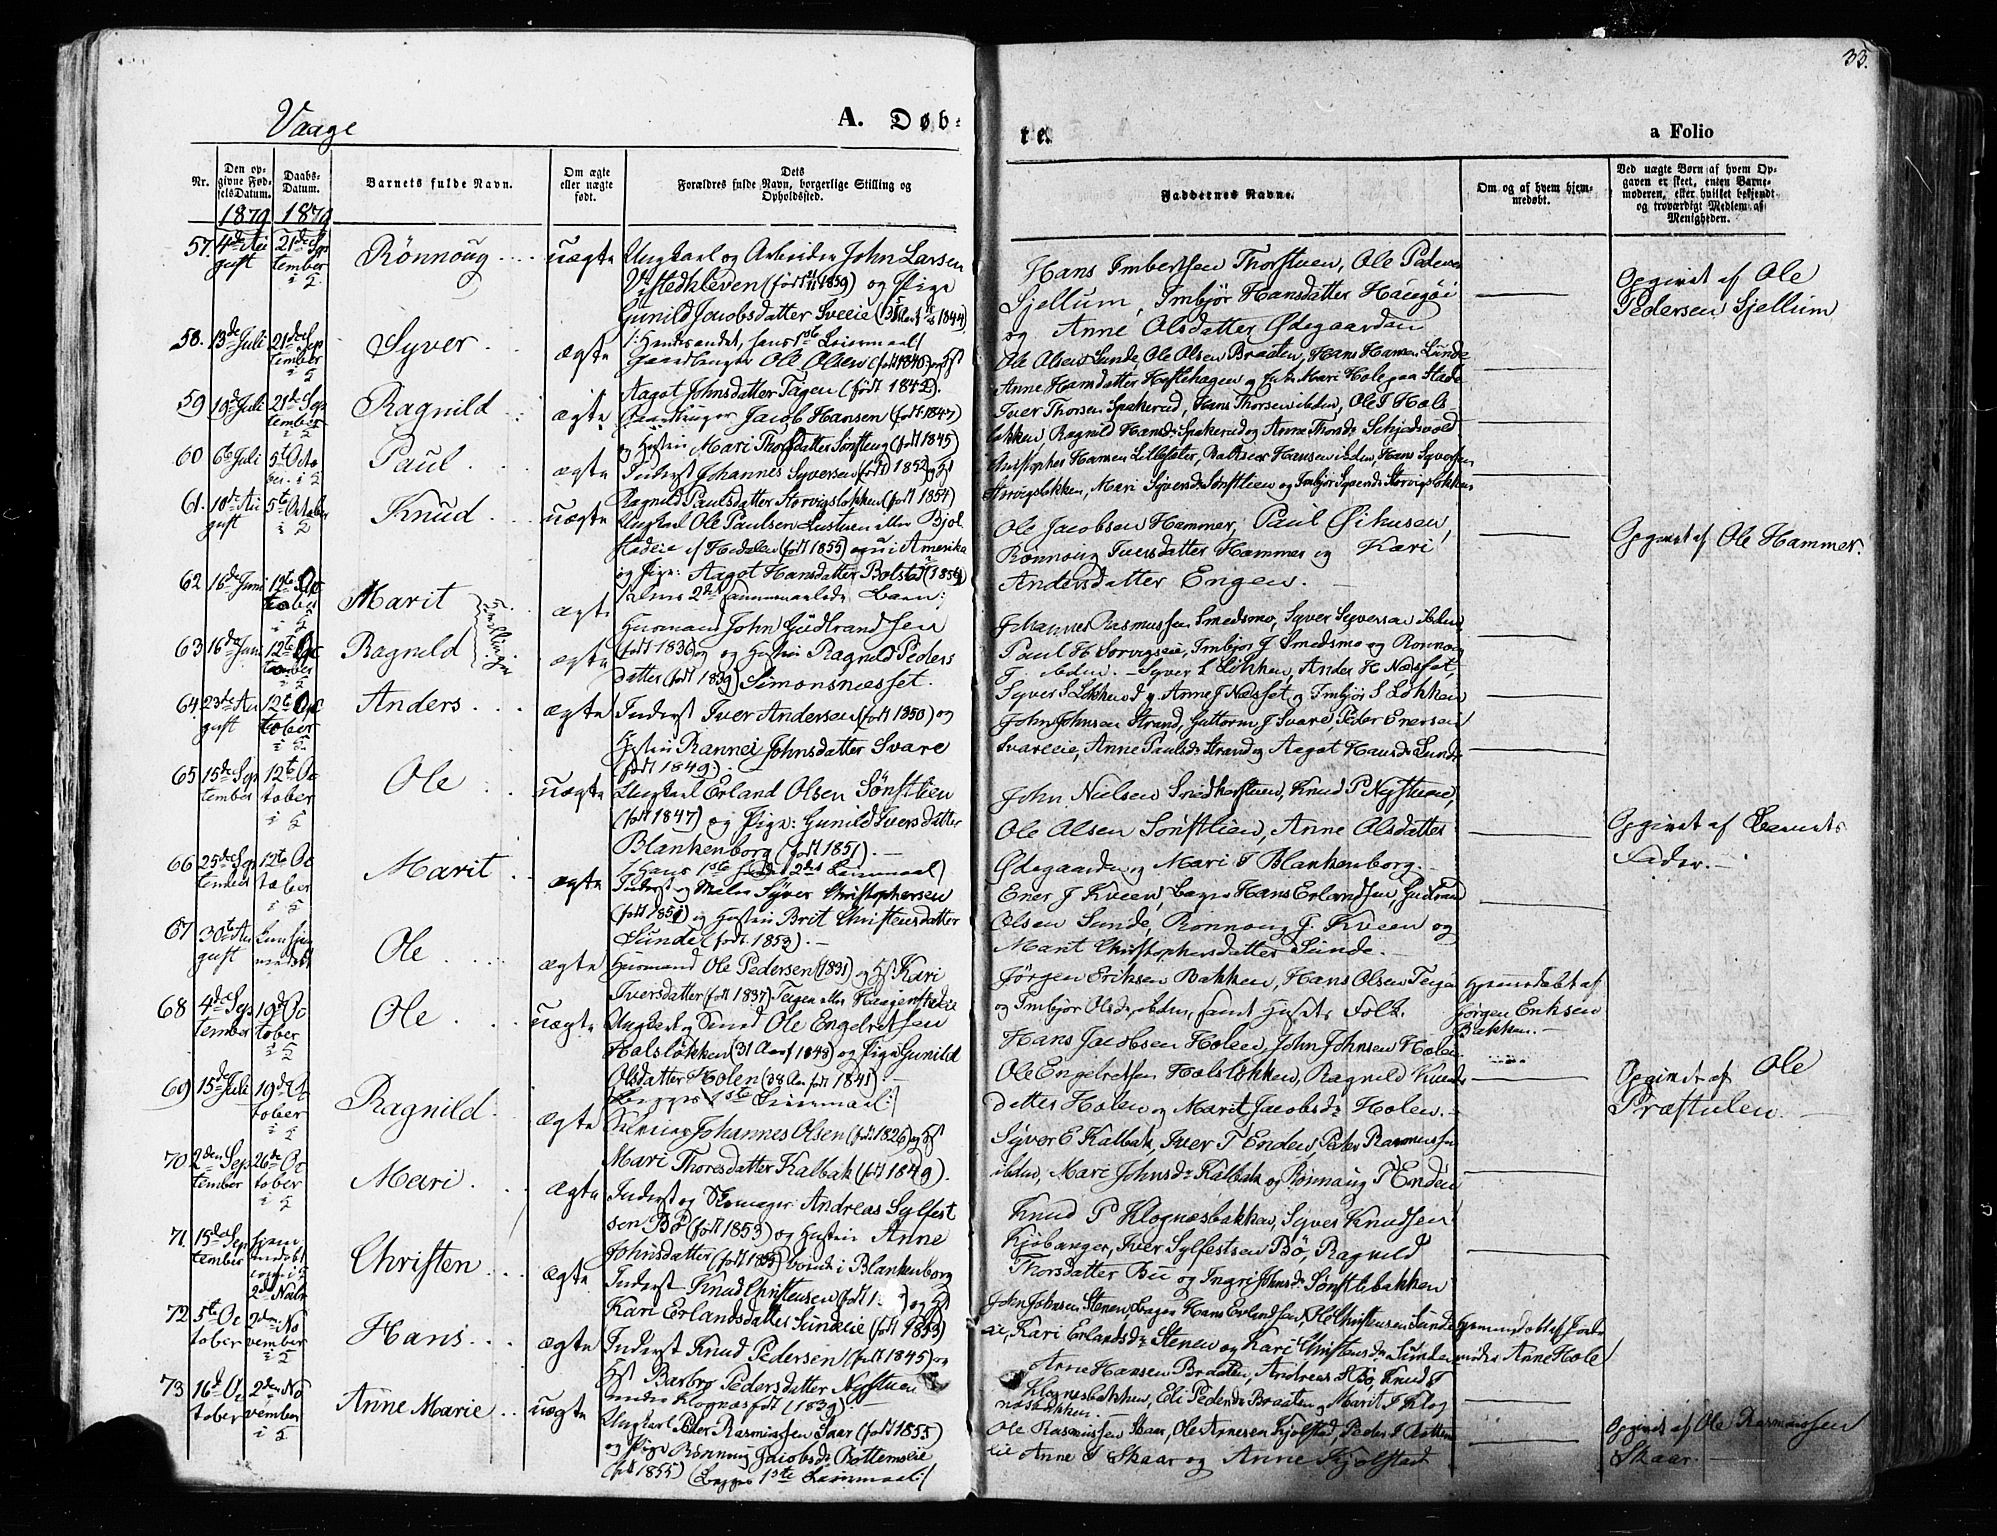 33.
Vaage
A. Døb-
te.
a Folio
Nr.
Den op-
givne Fød-
selsDatum.
Daabs-
Datum.
Barnets fulde Navn.
Om ægte
eller uægte
født.
Dets
Forældres fulde Navn, borgerlige Stilling og
Opholdssted.
Faddernes Navne.
Om og af hvem hjem-
medøbt.
Ved uægte Børn af hvem Op-
gaven er skeet, enten Barne-
moderen, eller hvilket bekjendt
og troværdigt Medlem af
Menigheden.
1879 1879
57. 4de Au
gust
21de Sep
tember
i 2
Rönnoug
uægte
Ungkarl og Arbeider John Larsen
og Pige
Gunild Jacobsdatter Sveeie
Hans Imbertsen Thorstuen, Ole Peders
Sjellum, Imbjør Hansdatter
og Anne Olsdatter Ødegaarden
Opgivet af Ole
Pedersen Sjellum
58. 13de Juli
21de Sep
tember
i 2
Syver
ægte
Gaardbruger Ole Olsen (født 1840) og Hst
Aagot Johnsdatter Tagen (født 1842).
Ole Olsen Sunde, Ole Olsen Braaten, Hans Hansen Sunde
Anne Hansdatter Heftehagen og Enke Mari Hole paa Stade
59 19de Juli
21de Sep
tember
i 2
Ragnild
ægte
Gaardbruger Jacob Hansen (født 1847)
og Hustru Mari Thorsdatter Sønsteng (født 1845)
Iver Thorsen Spakerud, Hans Thorsen ibden, Ole I Hols
løkken Ragnild Hansdr Spakerud og Anne Thorsdr Schjedsvold
60 6te Juli
5te Octo
ber i 2
Paul
ægte
Inderst Johannes Syversen (født 1852) og Hst
Ragnild Paulsdatter Storvigsløkken (født 1854)
Christopher Hansen Lillesæter, Baltser Hansen ibden, Hans Syversen
Storvigsløkken, Mari Syversdr Sønstlien og Imbjør Syversdr Storvigsløkken
61. 10de Au
gust
5te October
i 2
Knud
uægte
Ungkarl Ole Paulsen Lustuen eller Bjøl
stadeie af Hedalen (født 1855) nu i Amerika
og Pige: Aagot Hansdatter Bolstad (1856)
Ole Jacobsen Hammer, Paul Øihusen,
Rønnoug Iversdatter Hammer og Kari
Andersdatter Engen.
Opgivet af Ole Hammer.
62 16de Juni
12te Oc
tober
i 2
Marit
Tvillinger
ægte
Husmand John Gudbrandsen
(født 1836) og Hustru Ragnild Peders
datter (født 1839) Simonsnæsset.
Johannes Rasmussen Smedsmo, Syver Syversen ibden,
Paul H Sorvigseie, Imbjør J. Smedsmo og Rønnoug
63 16de Juni
12te Oc
tober
i 2
Ragnild
ægte
J ibden. – Syver S Løkken, Anders H Næsset,
Syver S Løkken, Anne J Næsset og Imbjør S Løkken
64. 23de Au
gust
12te Oc
tober
i 2
Anders
ægte
Inderst Iver Andersen (født 1850) og
Hustru Rannei Johnsdatter Svare
(født 1849).
John Johnsen Strand, Guttorm J Svare, Peder Enersen
Svareeie, Anne Paulsdr Strand og Aagot Hansdr Sunde
65 15de Sep
tember
12te Oc
tober
i 2
Ole
uægte
Ungkarl Erland Olsen Sønstlien
(født 1847) og Pige: Gunild Iversdatter
Blankenborg (født 1851).
John Nielsen Snidkerstuen, Knud P Nystuen,
Ole Olsen Sønstlien, Anne Olsdatter
Ødegaarden og Mari I Blankenborg.
Opgivet af Barnets
Fader.
66 25de Sep
tember
12te Oc
tober
i 2
Marit
ægte
Inderst og Maler Syver Christophersen
(født 1851) og Hustru Brit Christensdatter
Sunde (født 1853).
Ener J Kveen, Bager Hans Erlandsen, Gudbrand
Olsen Sunde, Rønnoug J. Kveen og
Marit Christophersdatter Sunde.
67 30te Au
gust
Ole
ægte
Husmand Ole Pedersen (1831) og Hst Kari
Iversdatter (født 1837) Tagen eller Haagenstadeie
Jørgen Eriksen Bakken, Hans Olsen Teige
og Imbjør Olsdr ibden, samt Husets Folk.
Hjemmedøbt af
Jørgen Eriksen
Bakken.
68 4de Sep
tember
19de Oc
tober
i 2
Ole
uægte
Ungkarl og Smed Ole Engebretsen
Holsløkken (31 Aar f 1848) og Pige Gunild
Olsdatter Holen (38 Aar født 1841)
Begges 1ste Leiermaal:/
Hans Jacobsen Holen, John Johnsen Holen
Ole Engebretsen Holsløkken, Ragnild Knuds
datter Holen og Marit Jacobsdr Holen.
Opgivet af Ole
Præstulen
69 15de Juli
19de Oc
tober
i 2
Ragnild
ægte
Johannes Olsen (født 1826) og Hst
Mari Thoresdatter Kalbak (født 1849).
Syver E Kalbak, Iver T Enden, Peder Rasmussen
ibden, Mari Johnsdr Kalbak og Rønnaug T Enden
70 2den Sep
tember
26de Oc
tober
i 2
Mari
ægte
Inderst og Skomager Andreas Sylfest
sen Bø (født 1853) og Hustru Anne
Johnsdatter boende i Blankenborg
Knud P Klognæsbakken, Syver Knudsen
Kjøbanger, Iver Sylfestsen Bø, Ragnild
Thorsdatter Bu og Ingri Johnsdr Sønstebakken
71 15de Sep
tember
hjem
medøbt
2den Novbr
Christen
ægte
Inderst Knud Christensen og Hst
Kari Erlandsdatter Sundeie (født 1853)
John Johnsen Stenen, Bager Hans Erlandsen, Ole Christensen Sunde
eie, Kari Erlandsdr Stenen og Kari Christensdr Sunden
Hjemmedøbt af Jorde
moder Anne Hole
72 5te Oc
tober
2den No
vember
i 2
Hans
ægte
Inderst Knud Pedersen (født 1845) og
Hst Barbro Pedersdatter Nystuen
under Klognæs født (1839)
Arne Hansen Braaten, Andreas S Bø, Knud I
Klognæsbakken, Eli Pedersdr Braaten og Marit I Klog
næsbakken.
73 16de Oc
tober
2den No
vember
i 2
Anne Marie
uægte
Ungkarl Peder Rasmussen Skaar (født 1855)
og Pige Rønnoug Jacobsdr Bottemseie
(født 1855) (Begges 1ste Leiermaal:/
Ole Rasmussen Skaar, Ole Arnesen Kjolstad, Peder I Bottem
eie Anne I Skaar og Anne Kjolstad
Opgivet af Ole Rasmussen
Skaar.